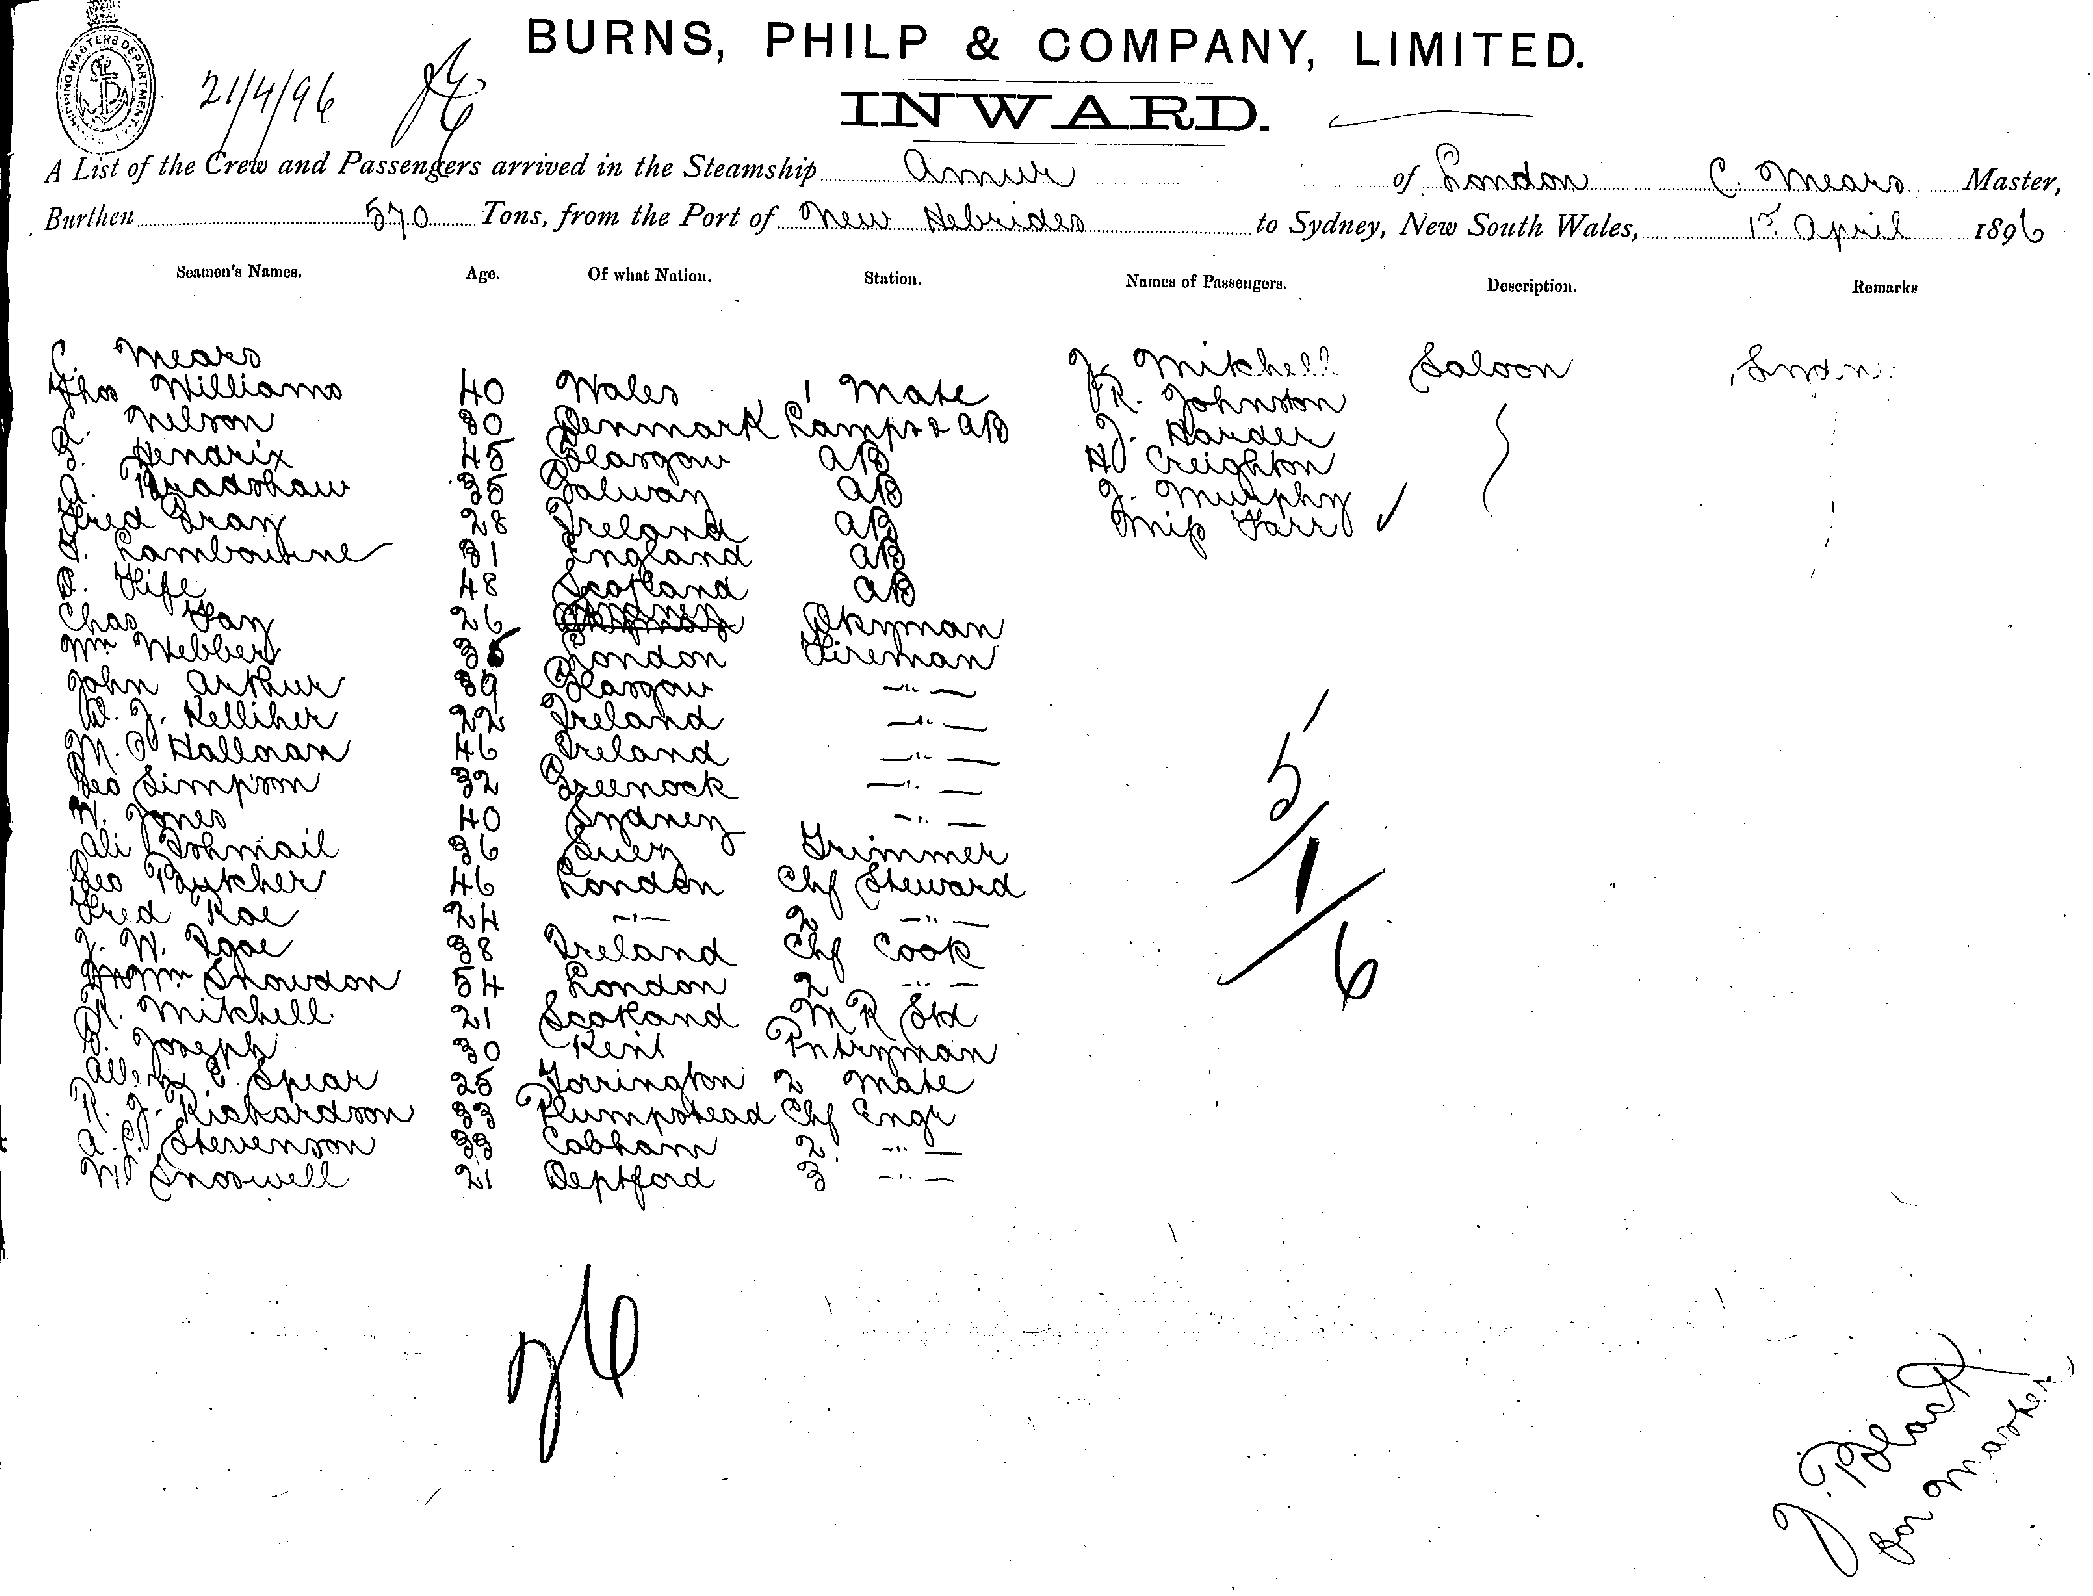 BURNS, PHILP & COMPANY, LIMITED.
INWARD.
SHIPPING MASTERS DEPARTMENT
21/4/96
A List of the Crew and Passengers arrived in the Steamship Amur of London C. Mears Master,
Burthen 570 Tons, from the Port of New Hebrides to Sydney, New South Wales, 1st April 1896
Seamen's Names. Age. Of what Nation. Station. Names of Passengers. Description. Remarks
C. Mears J. Mitchell Saloon
Thos Williams 40 Wales 1 Mate R. Johnston
Nelson 30 Denmark Lamps & AB J. Harder
Hendrix 45 Glasgow AB Creighton
Bradshaw 35 Galway AB J. Murphy
Fred Gray 28 Ireland AB Miss Farr
Lambourne 31 England AB
Fife 48 Scotland AB
Chas Fay 26 Sydney Dkyman
Wm Webber 35 London Fireman
John Arthur 39 Glasgow -"-
D. J. Kelliher 22 Ireland -"-
M. O Hallnan 46 Ireland -"-
Geo Simpson 32 Greenock -"-
W. Jones 40 Sydney -"-
Ali Ishmail 36 Suez Trimmer
Geo Butcher 46 London Chf Steward
Fred Rae 24 -"- 2 -"-
J. W. Igoe 38 Ireland Chf Cook
Wm Snowdon 54 London 2 -"-
R. Mitchell 21 Scotland M R Std
Joseph 30 Kent Pntryman
E. Spear 25 Torrington 2 Mate
R. J. Richardson 33 Plumpstead Chf Engr
A. L. Stevenson 33 Cobham 2 -"-
W Snoswell 21 Deptford 3 -"-
5
1
6
J. Black
for Master